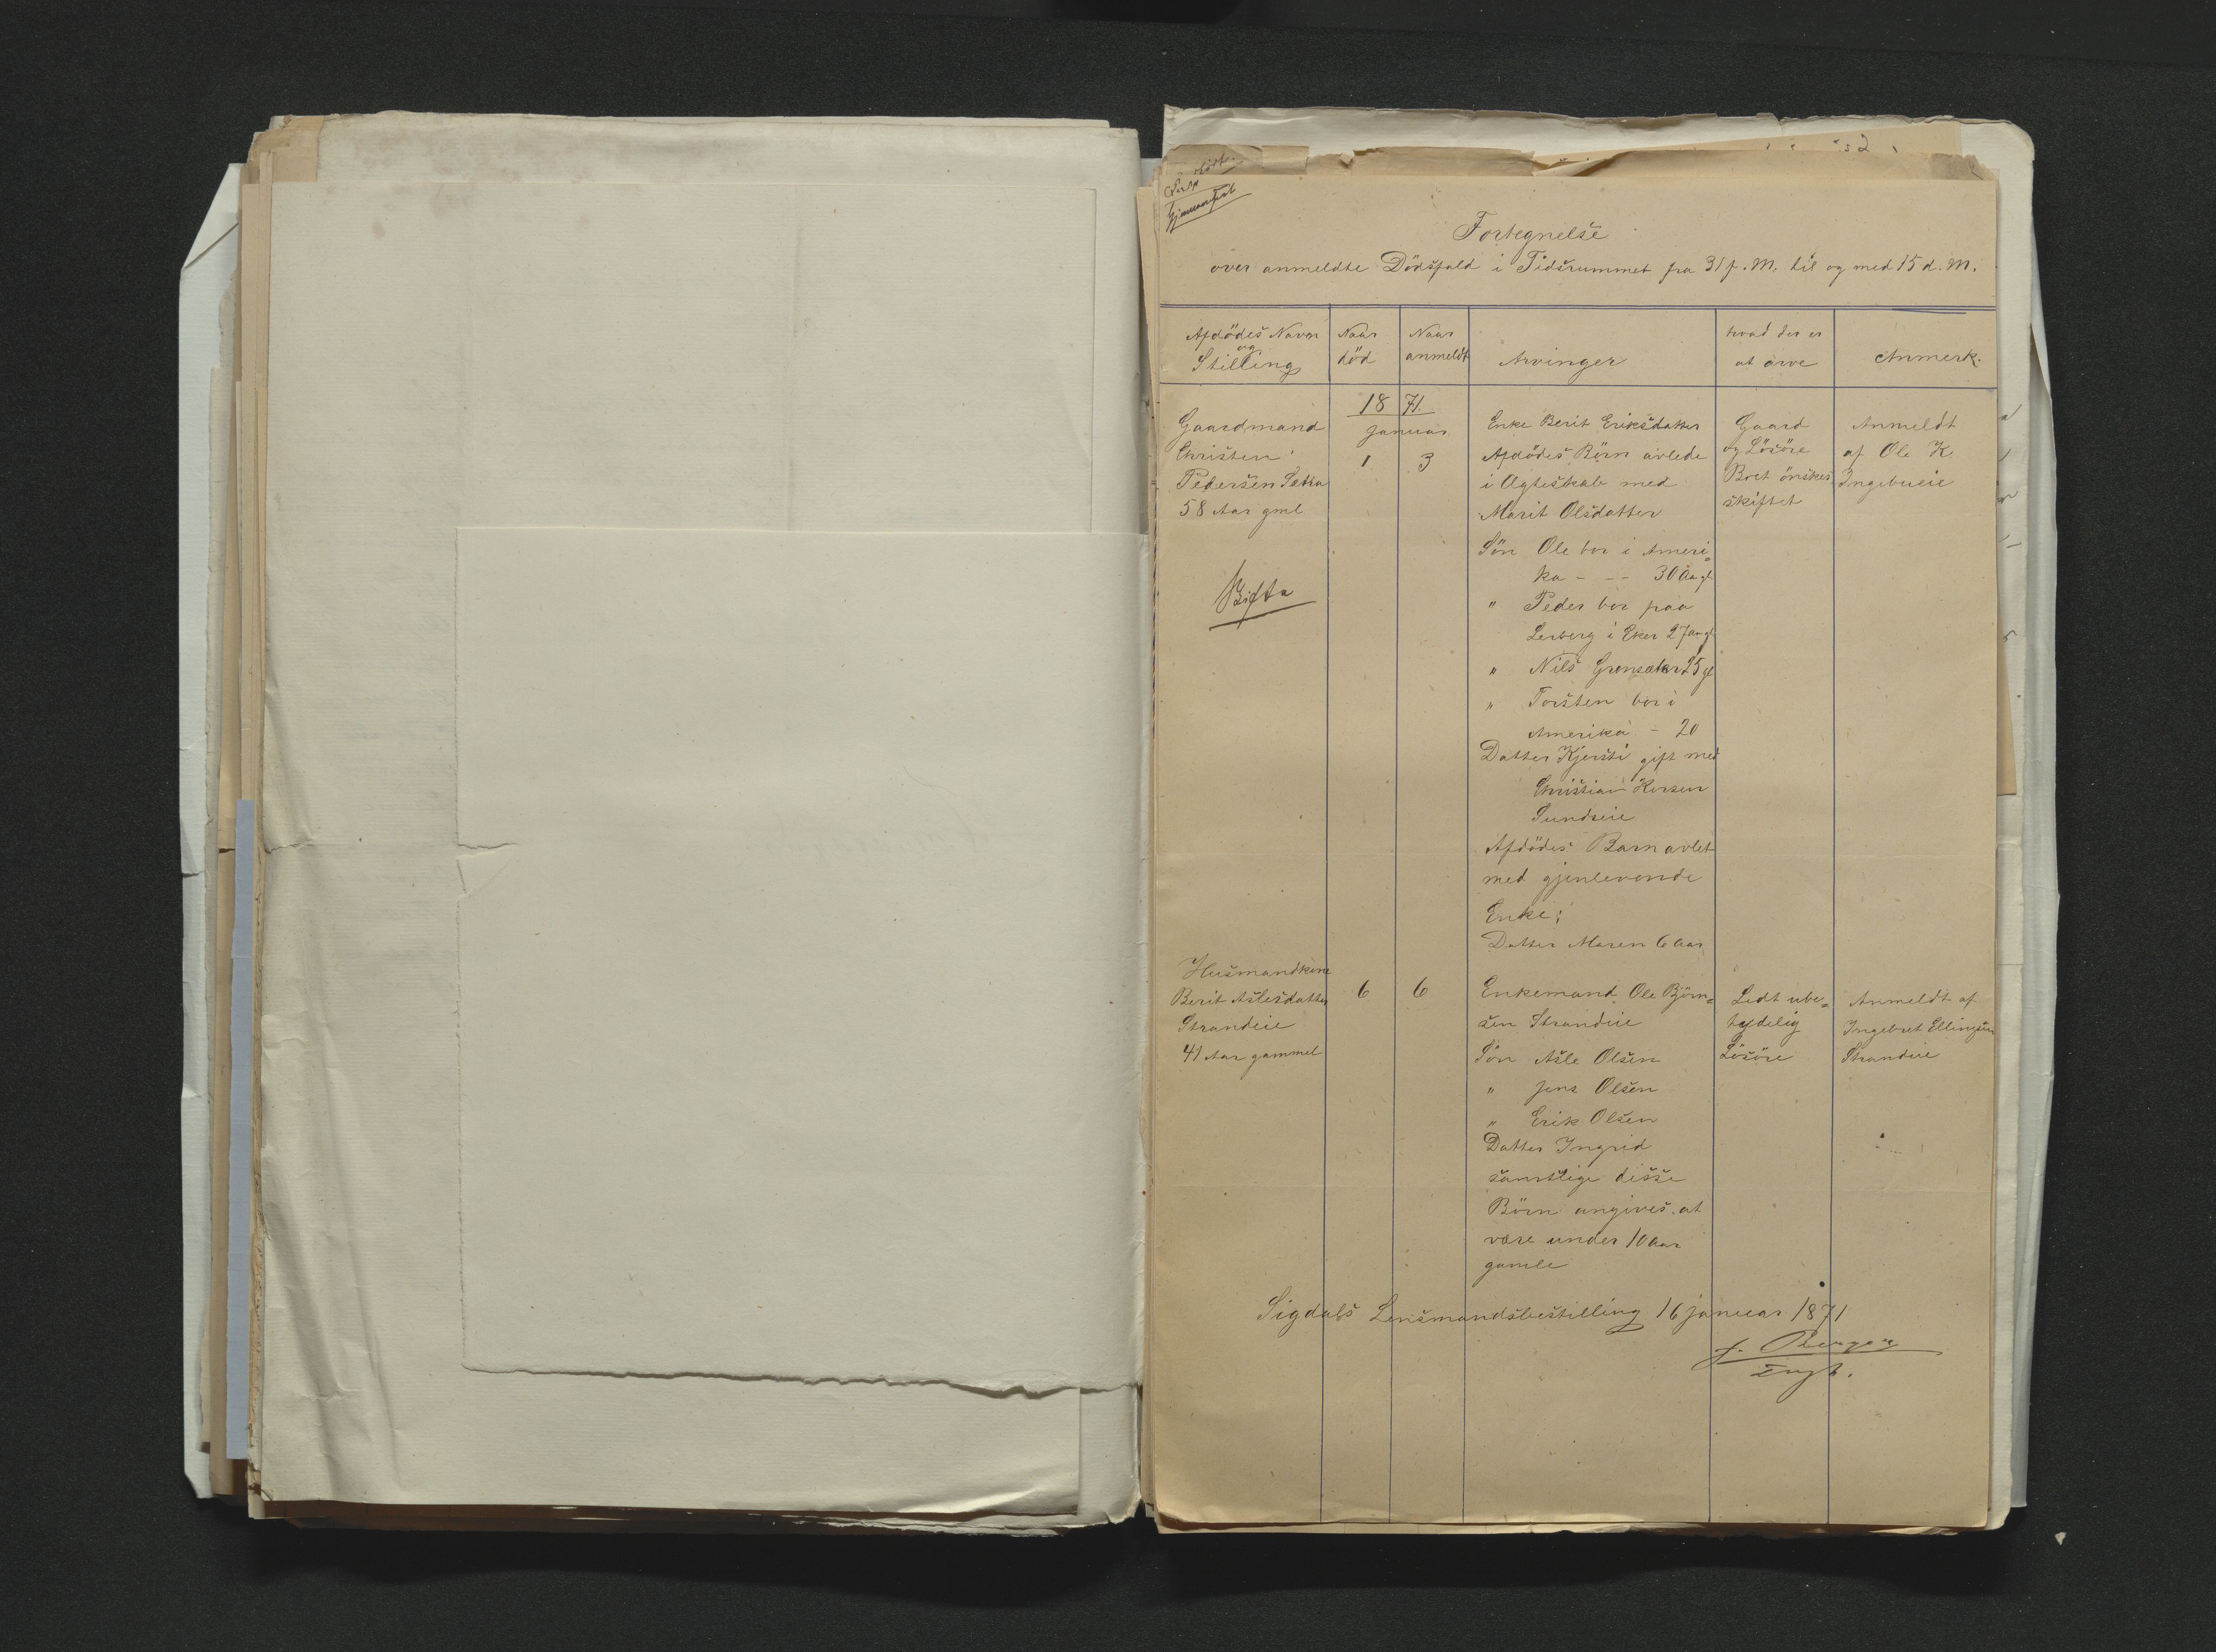 Fortegnelse
over anmeldte Dödsfald i Tidsrummet fra 31 f. M. til og med 15 d. M.
Afdödes Navn og Stilling
Naar död
Naar anmeldt
Arvinger
hvad der er at arve
Anmerk.
1871
Januar
Gaardmand
Christen
Pedersen Setra
58 Aar gml
Skifte
1
3
Enke Berit Eriksdatter
Afdödes Börn avlede
i Ægteskab med
Marit Olsdatter
Sön Ole bor i Ameri=
ka - - - 30 Aar gl
" Peder bor paa
Lerberg i Eker 27 aar gl
" Nils Grensæter 25 gl
" Torsten bor i
Amerika - 20
Datter Kjersti gift med
Christian
Sundseie
Afdödes Barn avlet
med gjenlevende
Enke;
Datter Maren 6 Aar
Gaard
og Lösöre
Boet önskes
skiftet
Anmeldt
af Ole K.
Husmandkone
Berit Aslesdatter
Strandeie
41 Aar gammel
6
6
Enkemand Ole Björn=
sen Strandeie
Sön Asle Olsen
" Jens Olsen
" Erik Olsen
Datter Ingrid
samtlige disse
Börn angives at
være under 10 Aar
gamle
Lidt ube=
tydelig
Lösöre
Anmeldt af
Ingebret Ellingsen
Strandeie
Sigdals Lensmandsbestilling 16 januar 1871